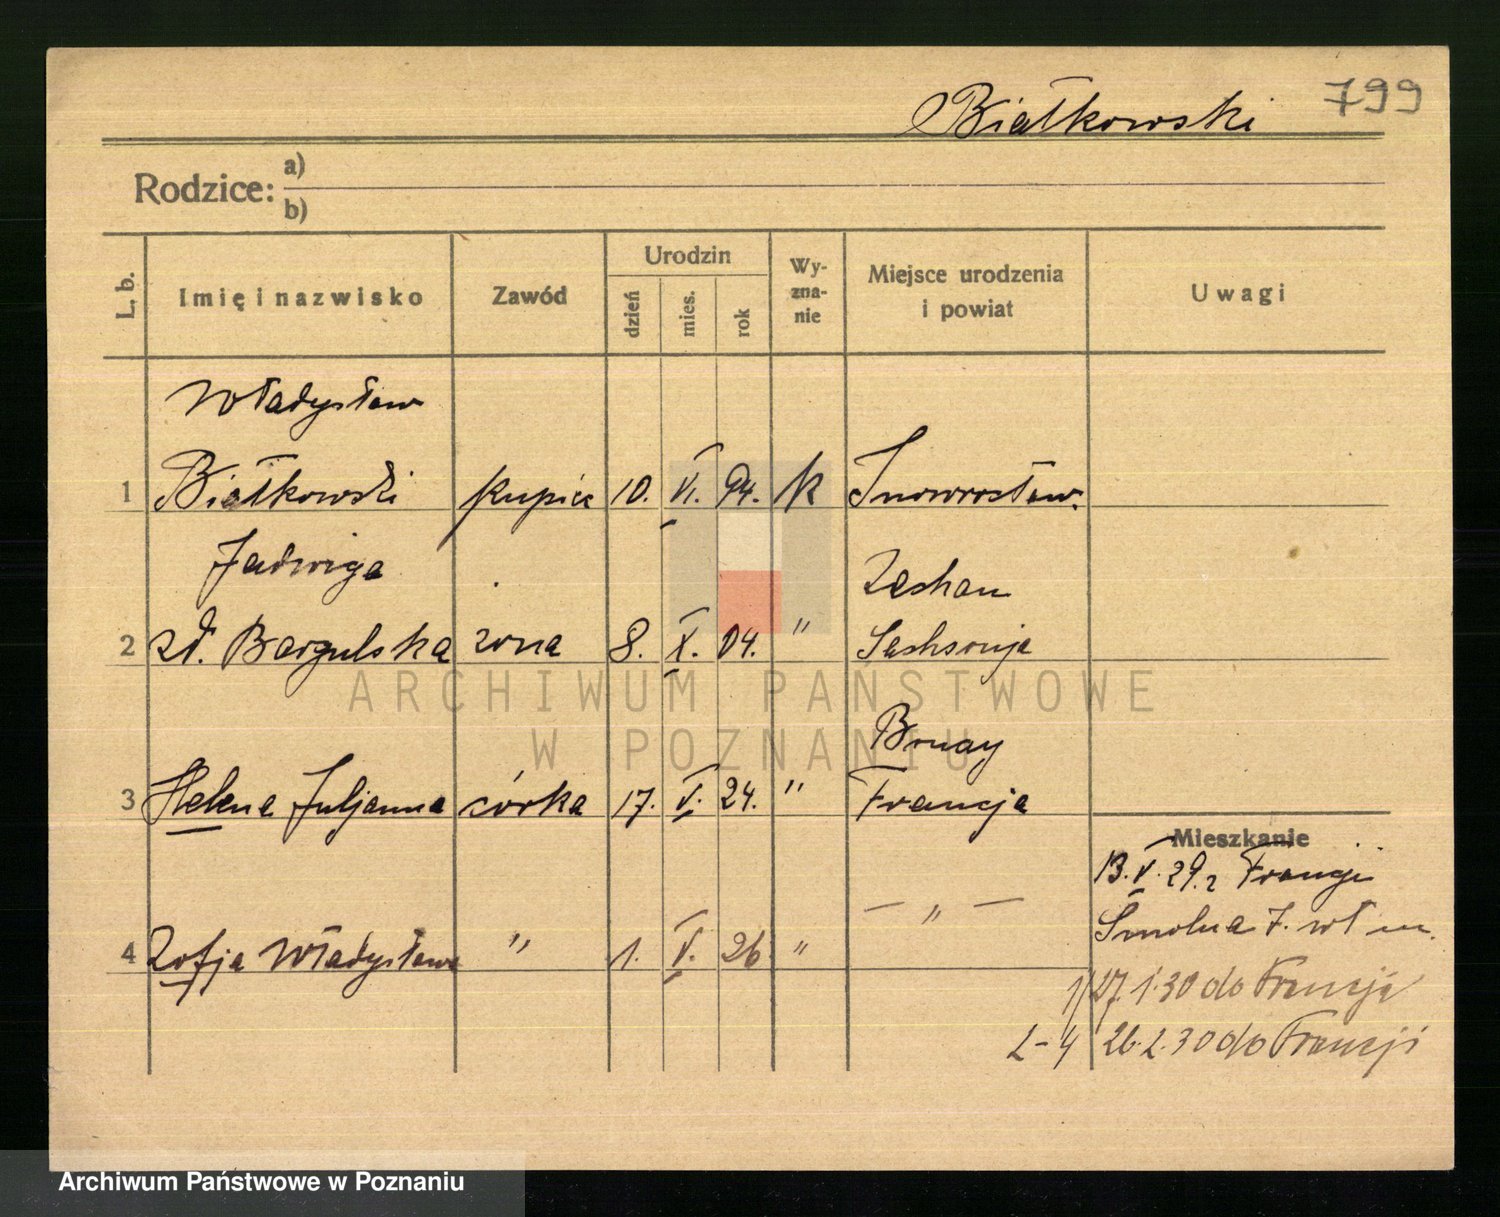 Białkowski 799
Rodzice: a)
b)
L. b. Imię i nazwisko Zawód Urodzin dzień mies. rok Wyznanie Miejsce urodzenia i powiat Uwagi
Władysław
1 Białkowski kupiec 10. VI. 94. k Inowrocław.
Jadwiga Zechau
2 zd. Bargulska żona 8. X. 04. " Sachsonja
Bruay
3 Helena Juljanna córka 17. V. 24. " Francja
Mieszkanie
13. V. 29. z Francji
— " — Smolna 7. wł m.
4 Zofja Władysława " 1. V. 26 "
1/ 27. 1. 30 do Francji
2-4 26. 2. 30 do Francji
ARCHIWUM PAŃSTWOWE
W POZNANIU
Archiwum Państwowe w Poznaniu